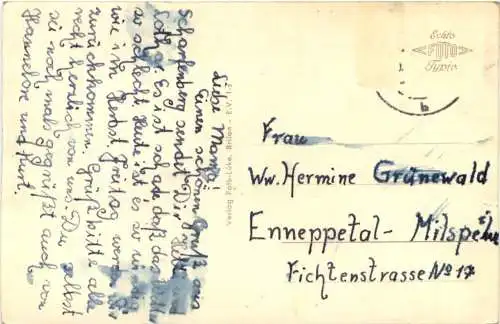 Liebe Mama!
Einen schönen Gruß aus
Scharfenberg sendet Dir Deine
Lotha. Es ist schade, daß das
so schlecht. Heut ist es so windig
wie im Herbst. Freitag werden wir
zurückkommen. Grüß bitte alle
recht herzlich von uns. Du selbst
sei noch mals gegrüßt auch von
Hannelore und Kurt.
Verlag Foto-Löke, Brilon - E.V.
Echte
FOTO
Typie
b
Frau
Ww. Hermine Grünewald
Enneppetal - Milspe
Fichtenstrasse No 17